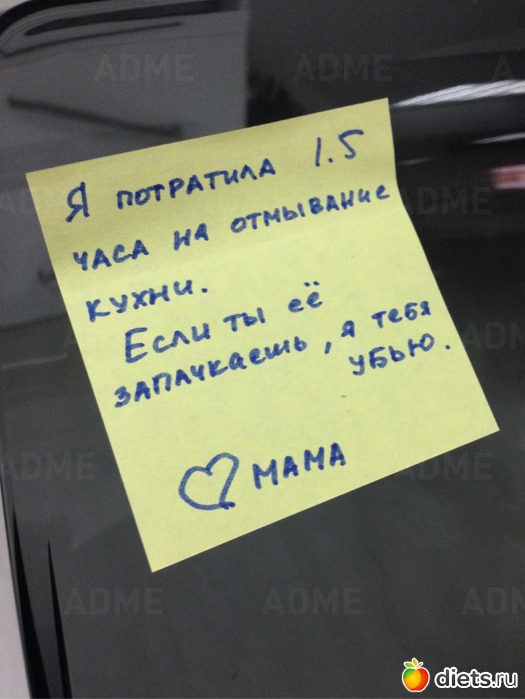 ADME ADME
Я ПОТРАТИЛА 1.5
ЧАСА НА ОТМЫВАНИЕ
КУХНИ.
ЕСЛИ ТЫ ЕЁ
ЗАПАЧКАЕШЬ, Я ТЕБЯ
УБЬЮ.
♡ МАМА
ADME ADME
ADME ADME AD
diets.ru